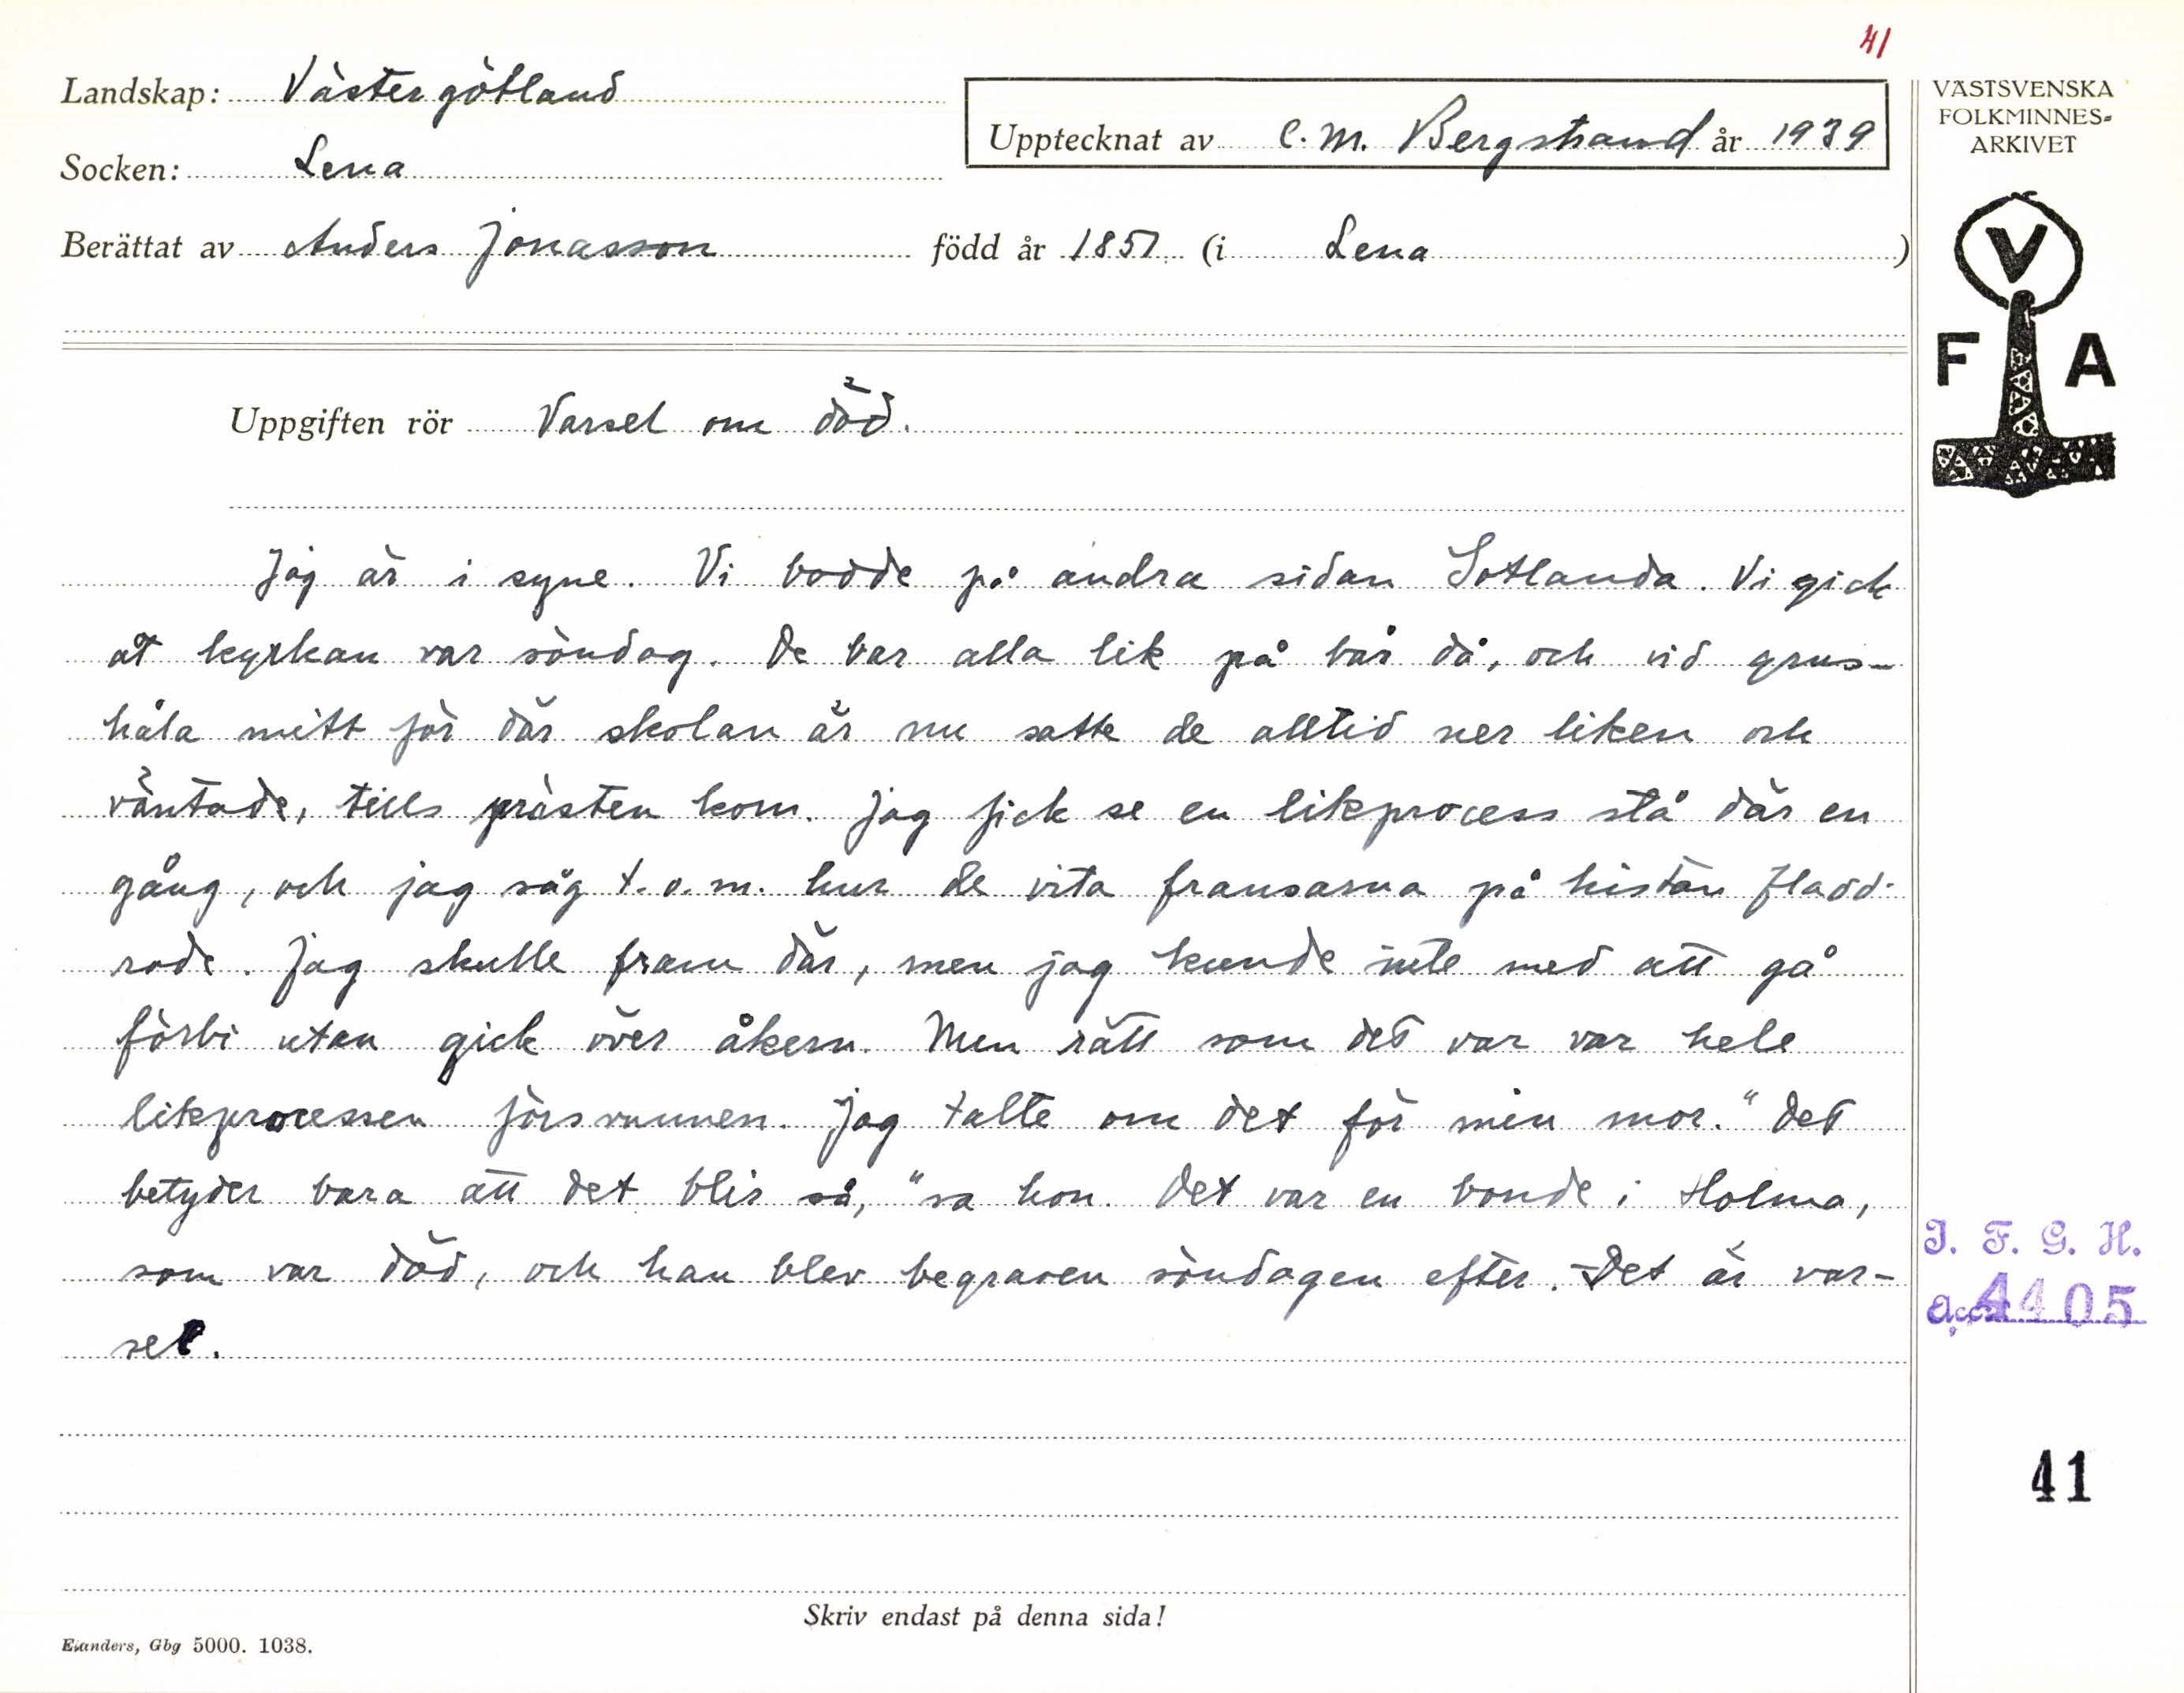 41
Landskap: Västergötland
Socken: Lena
Upptecknat av C. M. Bergstrand år 1939
Berättat av Anders Jonasson född år 1851 (i Lena)
VÄSTSVENSKA
FOLKMINNES=
ARKIVET
V
F A
Uppgiften rör Varsel om död.
Jag är i syne. Vi bodde på andra sidan Sotlanda. Vi gick
åt kyrkan var söndag. De bar alla lik på bår då, och vid grus-
håla mitt för där skolan är nu satte de alltid ner liken och
väntade, tills prästen kom. Jag fick se en likprocess stå där en
gång, och jag såg t.o.m. hur de vita fransarna på kistan fladd-
rade. Jag skulle fram där, men jag kunde inte med att gå
förbi utan gick över åkern. Men rätt som det var var hele
likprocessen försvunnen. Jag talte om det för min mor. "Det
betyder bara att det blir så," sa hon. Det var en bonde i Holma,
som var död, och han blev begraven söndagen efter. - Det är var-
sel.
I. F. G. H.
Acc. 4405
41
Skriv endast på denna sida!
Elanders, Gbg 5000. 1038.